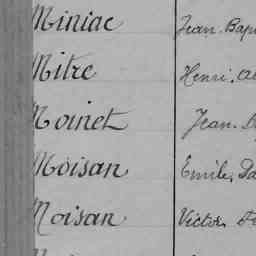 Miniac Jean. Bap
Mitre Henri. Al
Moinet Jean.
Moisan Emile. Da
Moisan Victor.